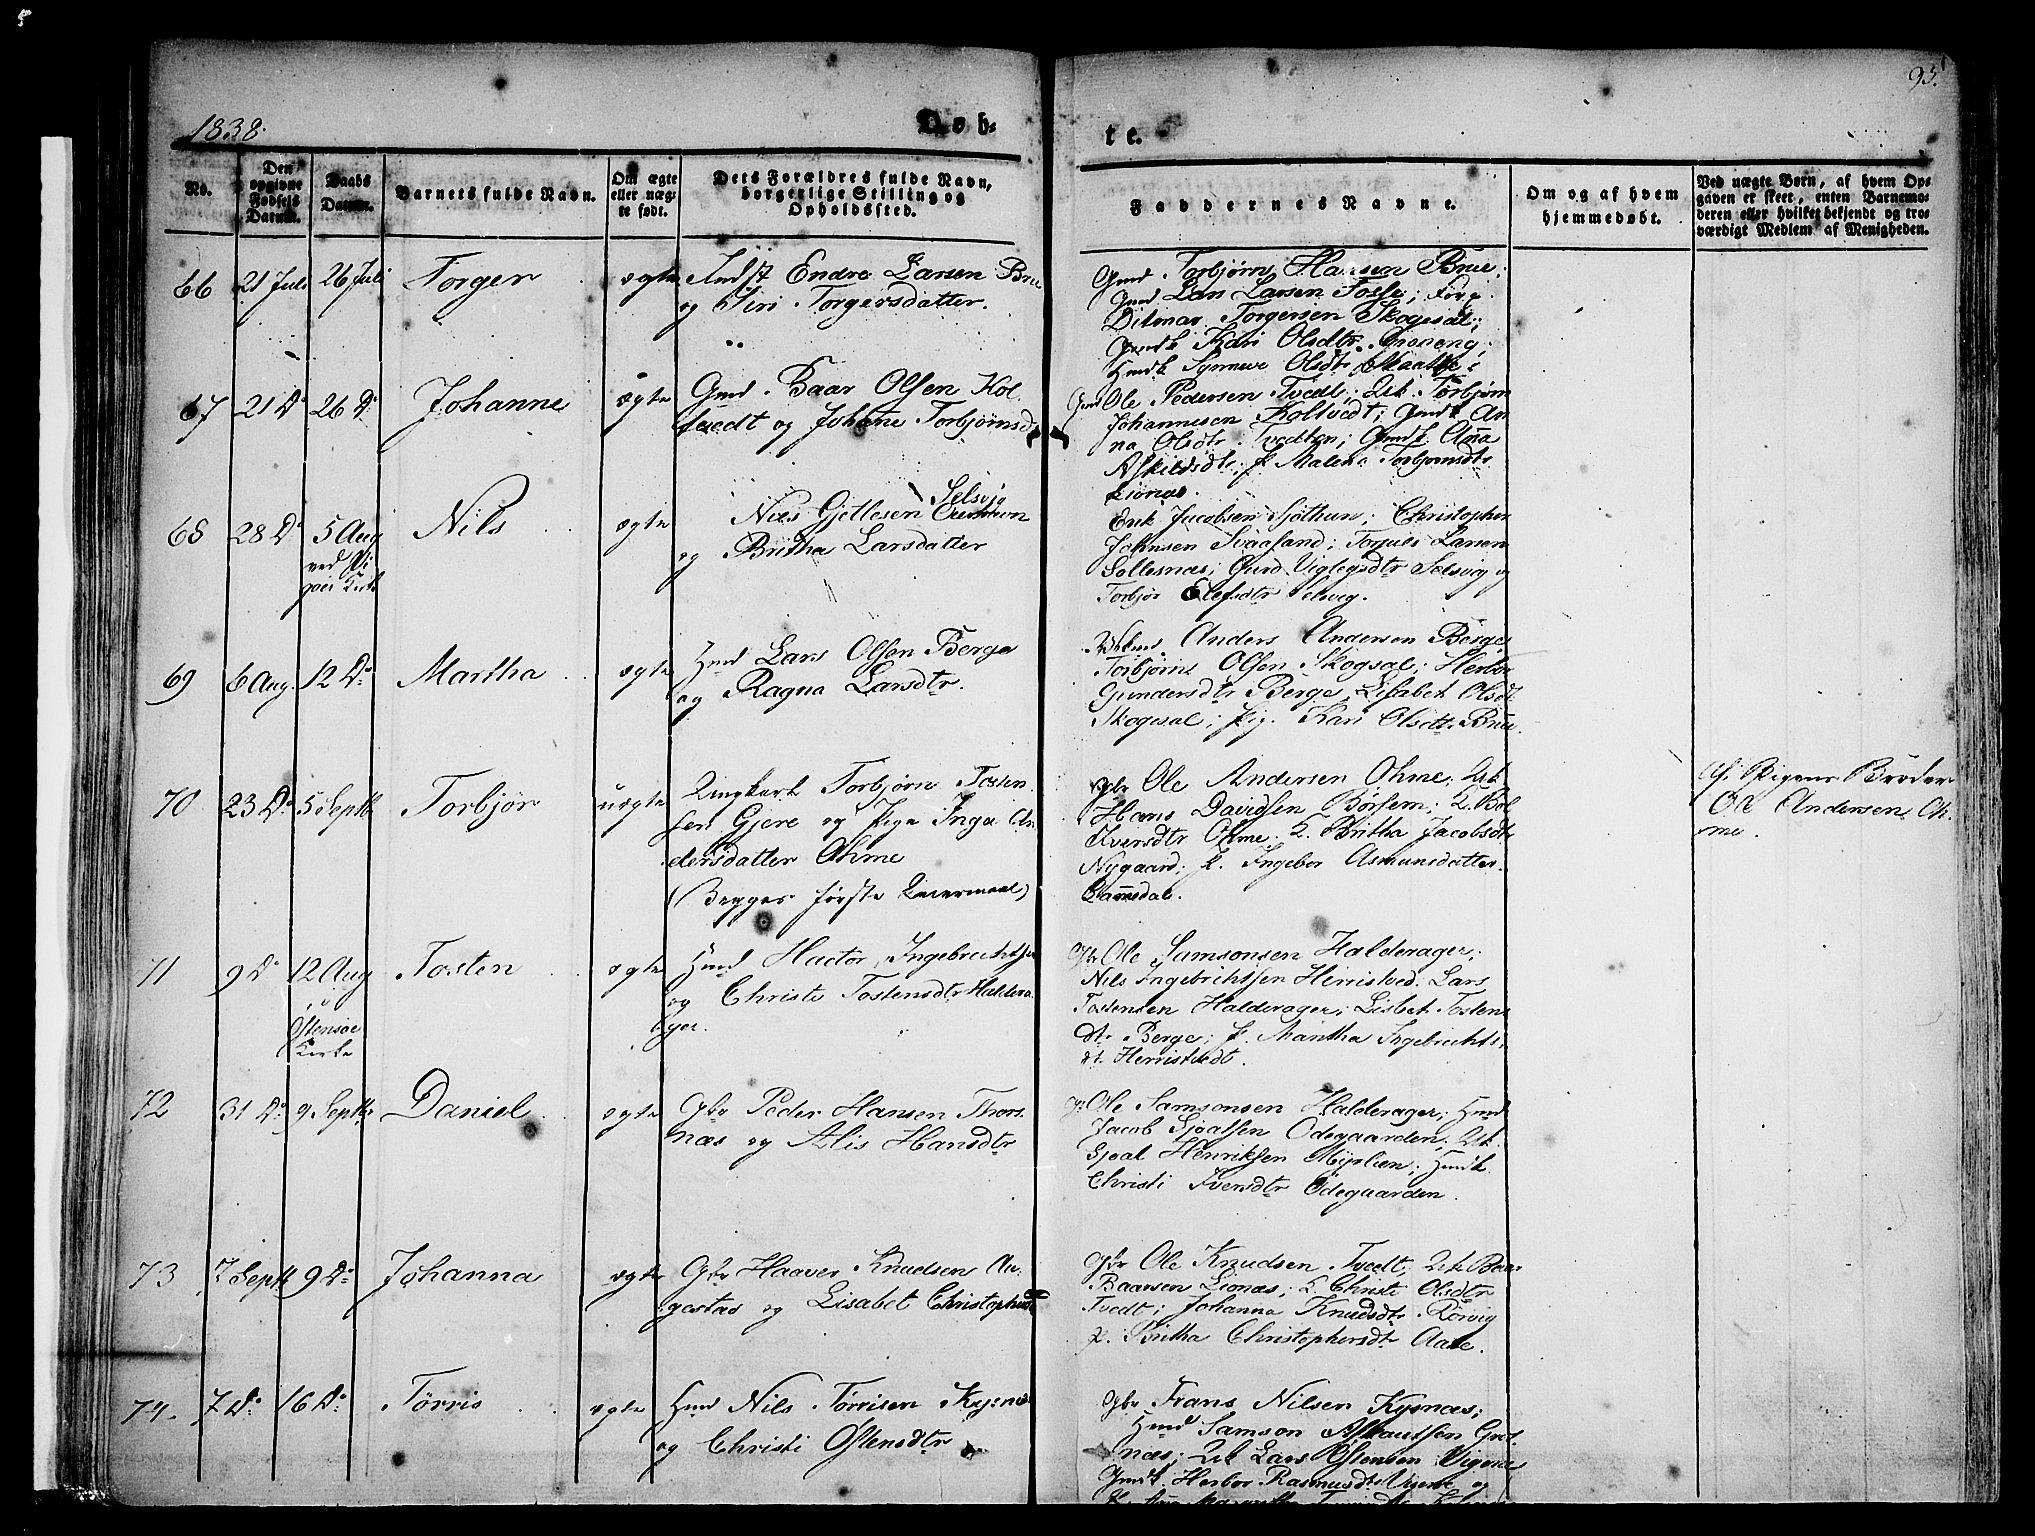 1838.
Døb-
te.
93.
No.
Den opgivne Fødsels Datum.
Daabs Datum.
Barnets fulde Navn.
Om ægte eller uægte født.
Dets Forældres fulde Navn, borgerlige Stilling og Opholdssted.
Faddernes Navne.
Om og af hvem hjemmedøbt.
Ved uægte Børn, af hvem Op-
gaven er skeet, enten Barnemo-
deren eller hvilket bekjendt og tro-
værdigt Medlem af Menigheden.
66 21 Juli 26 Juli Torger ægte Indst Endre Larsen Brue
og Siri Torgersdatter.
Gmd. Torbjørn Hansen Brue;
Gmd Lars Larsen Fosse;
Ditmar Torgersen Skogesal;
Gmdk Kari Olsdtr
Hmdk Synneve Olsdtr
67 21 Do 26 Do Johanne ægte Gmd. Baar Olsen Kol
tvedt og Johane Torbjørnsd
Gmd Ole Pedersen Tvedt; Uk Torbjørn
Johannesen Koltvedt; Gmdk An
na Olsdtr. Tvedten; Gmdk Anna
Askildsdtr; P Malena Torbjørnsdtr
Lionæs.
68 28 Do 5 Aug ægte Nils Nils Gjetlesen Selsvig
ved Vi
kirke
og Britha Larsdatter
Erik Jacobsen Sjøthun; Christopher
Johnsen Svaasand; Torjuls Larsen
Sollesnæs; Gurd Viglegsdtr Selsvig og
Torbjør Olefsdtr Selsvig.
69 6 Aug. 12 Do Martha ægte Hmd Lars Olsen Berge
og Ragna Larsdtr.
Anders Andersen Berge
Torbjørns Olsen Skogsal; Herbor
Gundersdtr Berge, Lisabet Olsdt
Skogesal; Pig. Kari Olsdtr Brue.
70 23 Do 5 Septb Torbjør uægte Ungkarl Torbjørn Tosten
sen Gjere og Pige Inga An
dersdatter Ohme
(Begges første Leiermaal)
Gbr Ole Andersen Ohme; Uk
Hans Davidsen Børsem; P. Bol
Iversdtr Ohme; P. Britha Jacobsdtr
Nygaard; P. Ingebor Asmunsdatter
Lamsdal.
Af Pigens Broder
Ole Andersen Oh-
me.
71 9 Do 12 Aug Tosten ægte Hmd Hactor Ingebrichtsen
i
Østensøe
Kirke
og Christi Tostensdtr Haldera
ger.
Gbr Ole Samsonsen Halderager;
Nils Ingebrichtsen Herristved. Lars
Tostensen Halderager; Lisbet Tostens
dtr. Berge; P. Mantha Ingebrichts
dt. Herristvedt.
72 31 Do 9 Septbr Daniel ægte Gbr Peder Hansen Thors
næs og Alis Hansdtr
G. Ole Samsonsen Halderager; Hmd
Jacob Sjoatsen Odegaarden; Uk.
Sjoat Henriksen Myrlien; Hmdk
Christi Iversdtr Ødegaarden.
73 7 Septb 9 Do Johanna ægte Gbr Haaver Knudsen Au-
gastas og Lisabet Christophersd
Gbr Ole Knudsen Tvedt; Uk Baar
Baarsen Lionæs; P. Christi Olsdtr
Tvedt; Johanna Knudsdtr Rørvig
P. Britha Christophersdtr Aase.
74. 7 Do 16 Do Tørris ægte Hmd Nils Tørrisen Kysnæs
og Christi Østensdtr
Gbr Frans Nilsen Kysnæs;
Hmd Samson Aslautsen Gret
næs; Uk Lars Østensen Vigenæs
Gmdk. Herbor Rasmusdtr Vigenæs og